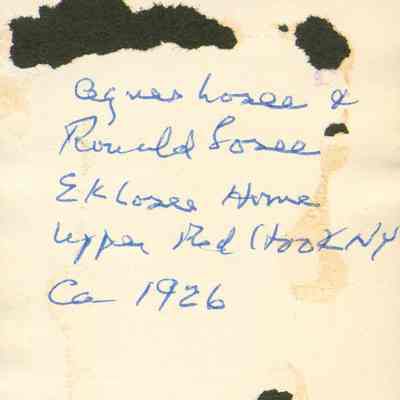 Agnes Losee &
Ronald Losee
EK Losee Home
Upper Red Hook NY
Ca 1926